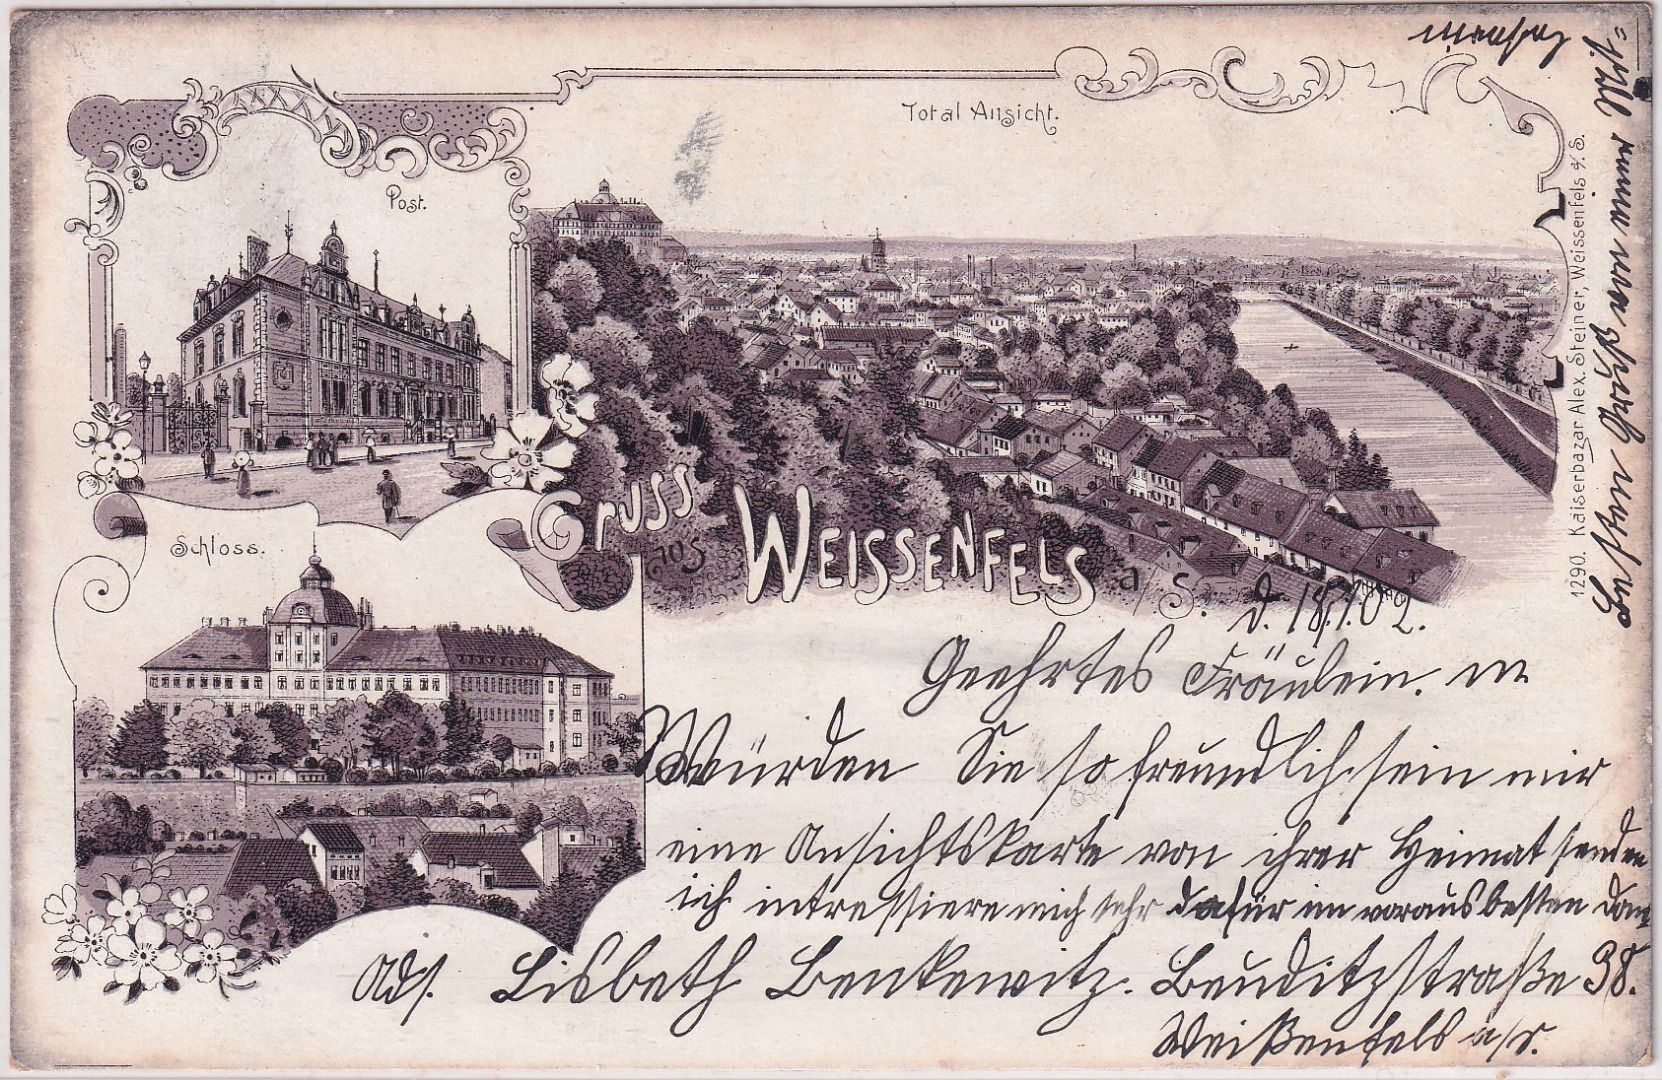 Total Ansicht.
Post.
Schloss.
Gruss
aus
WEISSENFELS a/S.
1290. Kaiserbazar Alex. Steiner, Weissenfels a/S.
d. 18.7.02.
Geehrtes Fräulein.
Würden Sie so freundlich sein mir
eine Ansichtskarte von ihrer Heimat senden
ich intressiere mich sehr dafür im voraus besten Dank
Ads. Lisbeth Benkewitz. Beuditzstraße 38.
Weißenfels a/S.